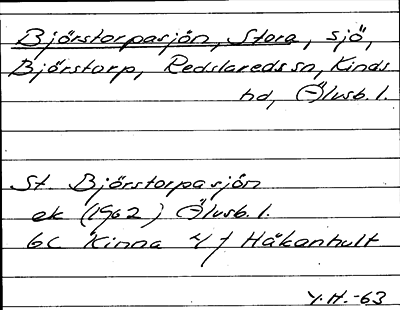 Björstorpasjön, Stora, sjö,
Björstorp, Redslareds sn, Kinds
hd, Älvsb. l.
St Björstorpasjön
ek (1962) Älvsb. l.
6C Kinna 4 f Håkanhult
Y.H.-63